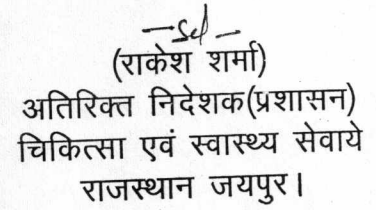 -sd-
(राकेश शर्मा)
अतिरिक्त निदेशक(प्रशासन)
चिकित्सा एवं स्वास्थ्य सेवाये
राजस्थान जयपुर।